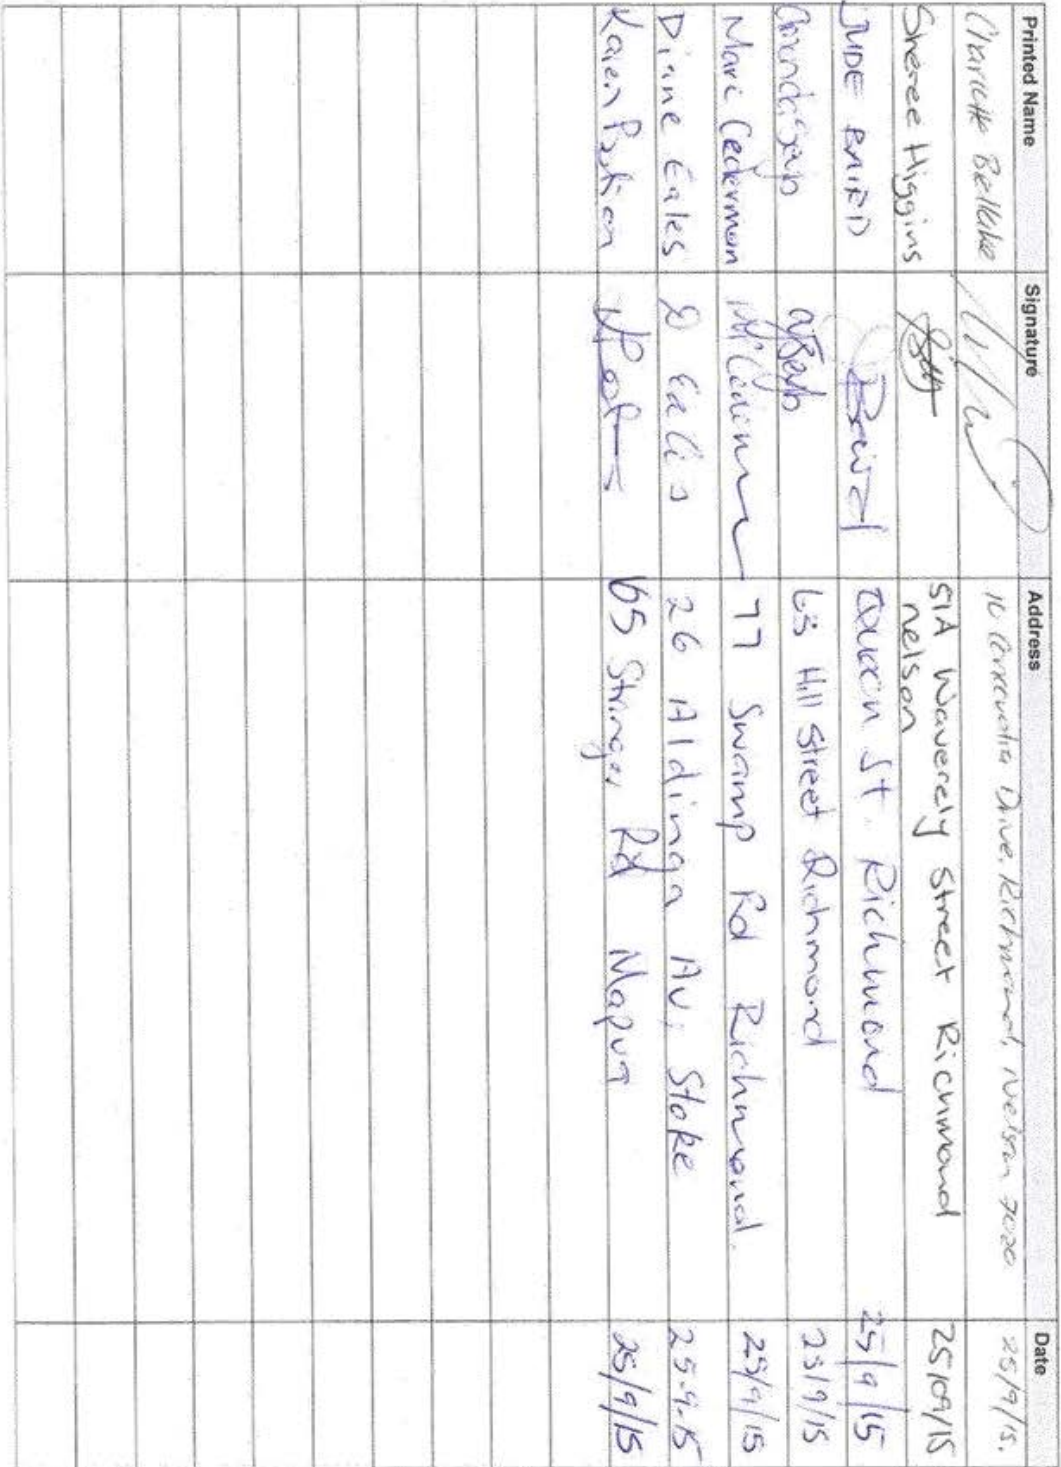 Printed Name Signature Address Date
Bellake Drive, Richmond, Nelson 7020 25/9/15.
Sheree Higgins 51A Waverely Street Richmond 25/09/15
nelson
JUDE BAIRD Baird Queen St. Richmond 25/9/15
63 Hill Street Richmond 25/9/15
Mari Cederman 77 Swamp Rd Richmond. 25/9/15
Diane Eales D Eales 26 Aldinga Av, Stoke 25-9-15
Karen 65 Stringer Rd Mapua 25/9/15